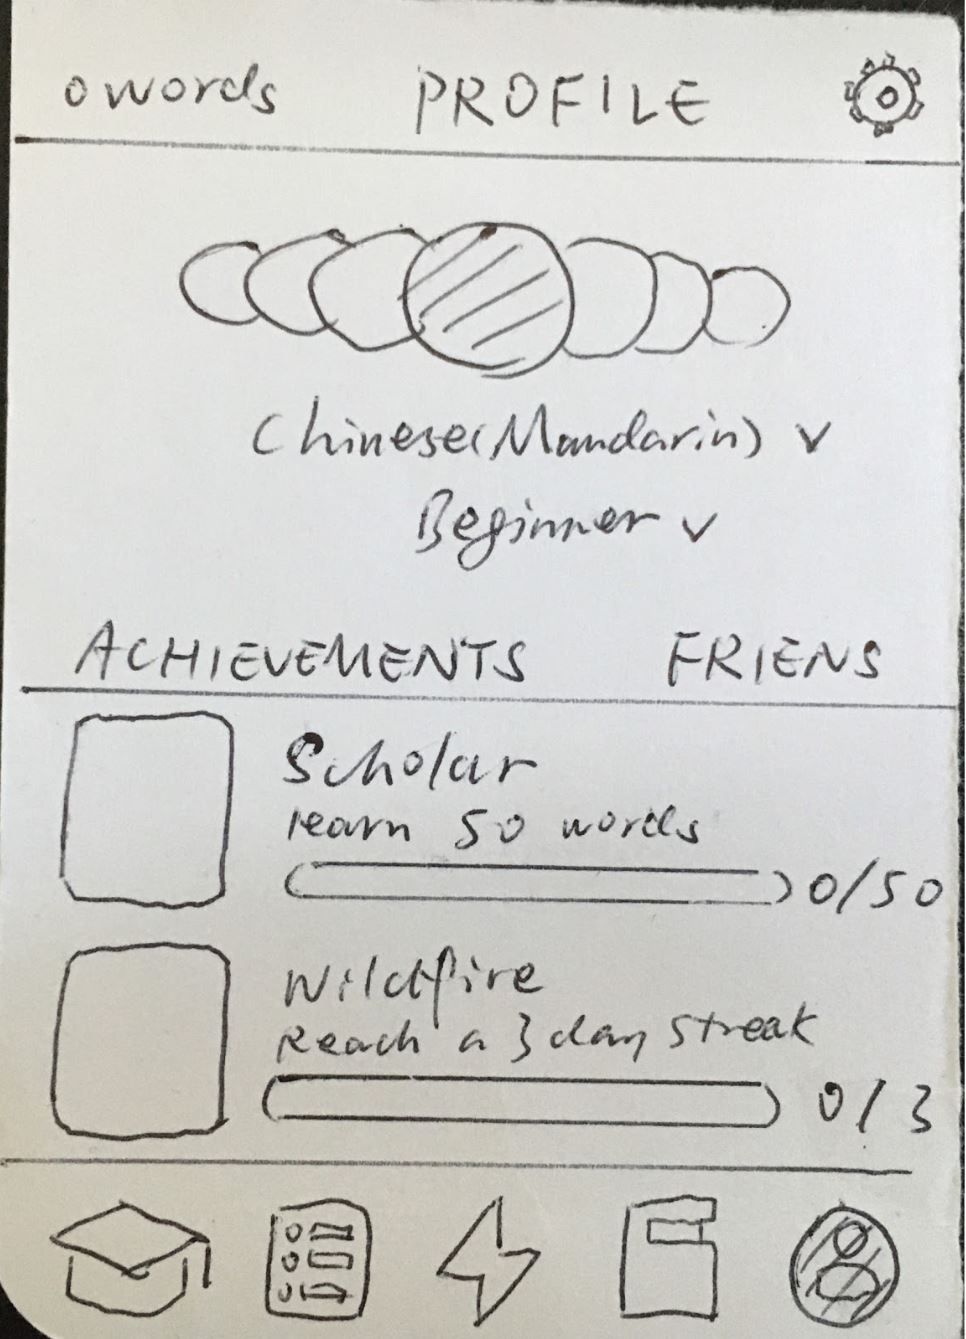 0 words PROFILE
Chinese(Mandarin) ∨
Beginner ∨
ACHIEVEMENTS FRIENS
Scholar
learn 50 words
0/50
Wildfire
Reach a 3 day streak
0/3